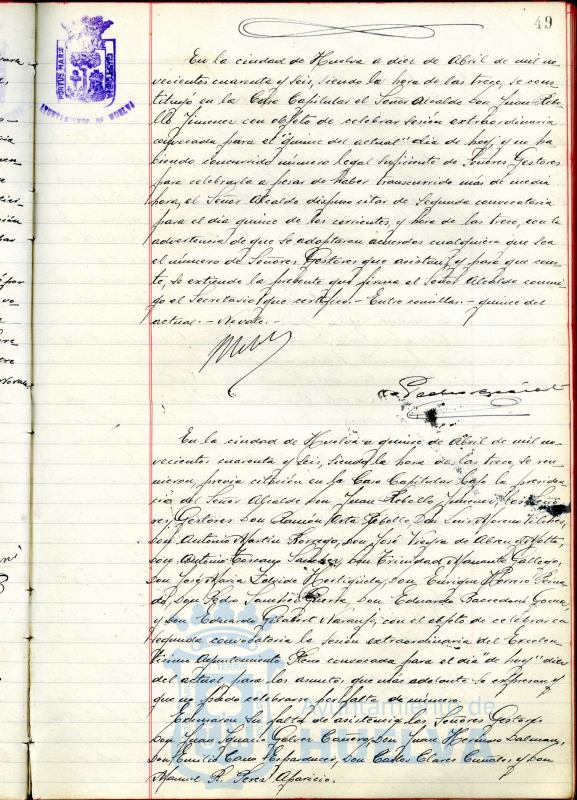 49
PORTUS MARIS
AYUNTAMIENTO DE HUELVA
En la ciudad de Huelva a diez de Abril de mil no-
vecientos cuarenta y seis, siendo la hora de las trece, se cons-
tituyó en la Casa Capitular el Señor Alcalde Don Juan Rebo-
llo Jimenez con objeto de celebrar sesión extraordinaria
convocada para el "quince del actual" dia de hoy, y no ha-
biendo concurrido número legal suficiente de Señores Gestores
para celebrarla a pesar de haber transcurrido más de media
hora, el Señor Alcalde dispuso citar de segunda convocatoria
para el dia quince de los corrientes, y hora de las trece, con la
advertencia de que se adoptaran acuerdos cualquiera que sea
el número de Señores Gestores que asistan, y para que cons-
te, se extiende la presente que firma el Señor Alcalde conmi-
go el Secretario que certifico.- Entre comillas.- quince del
actual.- No vale.-
En la ciudad de Huelva a quince de Abril de mil no-
vecientos cuarenta y seis, siendo la hora de las trece, se reu-
nieron, previa citación en la Casa Capitular bajo la presiden-
cia del Señor Alcalde Don Juan Rebollo Jimenez, los Seño-
res Gestores Don Ramón Rebollo, Don Luis Moreno
Don Antonio Martín Don José de Abreu
Don Antonio Toscano Sanchez, Don Trinidad Gallego,
Don José Maria Don Enrique
Don Pedro Don Eduardo
y Don Eduardo Gilabert Naranjo, con el objeto de celebrar en
segunda convocatoria la sesión extraordinaria del Excelen-
tísimo Ayuntamiento Pleno convocada para el dia "de hoy" diez
del actual, para los asuntos que más adelante se expresan y
que no pudo celebrarse por falta de número.
Excusaron su falta de asistencia los Señores Gestores
Don Juan Ignacio Galvez Cañero, Don Juan
Don Emilio Cano Don Carlos Clares y Don
Manuel R. Perez Aparicio.
Ayuntamiento de
HUELVA